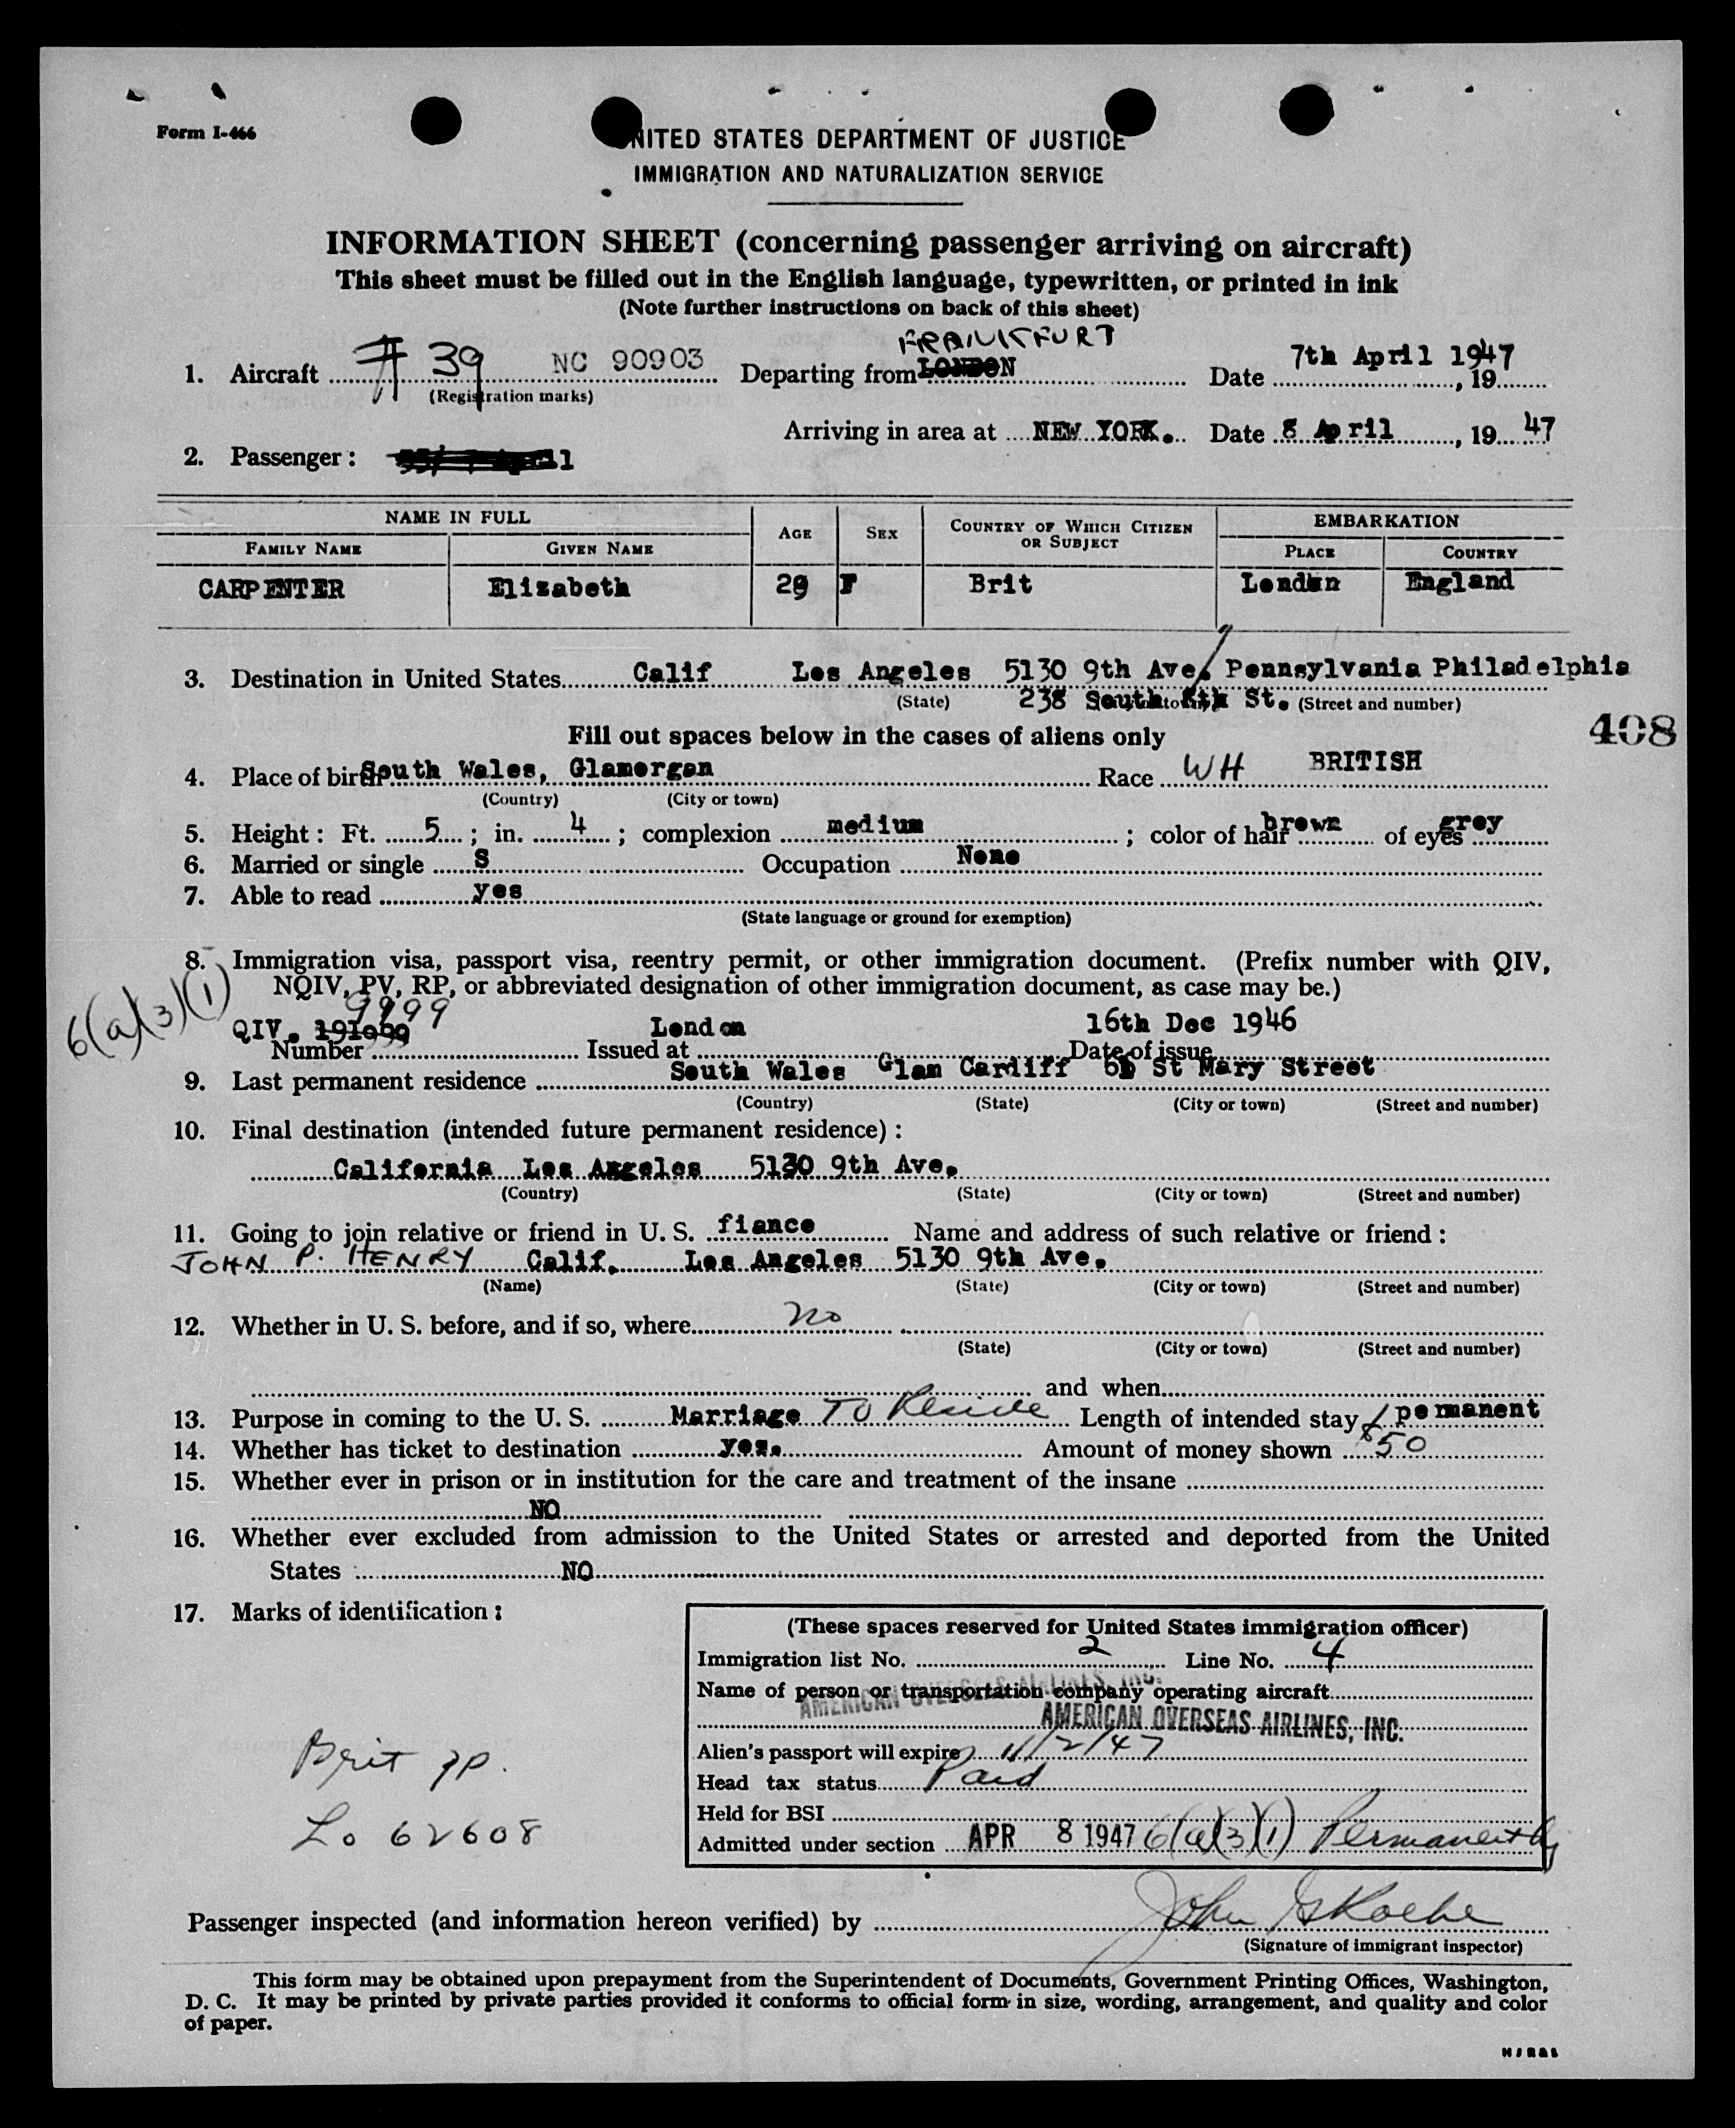 Form I-466
UNITED STATES DEPARTMENT OF JUSTICE
IMMIGRATION AND NATURALIZATION SERVICE
INFORMATION SHEET (concerning passenger arriving on aircraft)
This sheet must be filled out in the English language, typewritten, or printed in ink
(Note further instructions on back of this sheet)
FRANKFURT
1. Aircraft # 39 NC 90903 Departing from LONDON Date 7th April 1947, 19
(Registration marks)
Arriving in area at NEW YORK. Date 8 April, 19 47
2. Passenger:
NAME IN FULL AGE SEX COUNTRY OF WHICH CITIZEN OR SUBJECT EMBARKATION
FAMILY NAME GIVEN NAME PLACE COUNTRY
CARPENTER Elizabeth 29 F Brit London England
3. Destination in United States Calif Los Angeles 5130 9th Ave, Pennsylvania Philadelphia
(State) 238 South St. (Street and number)
408
Fill out spaces below in the cases of aliens only
4. Place of birth South Wales, Glamorgan Race WH BRITISH
(Country) (City or town)
5. Height: Ft. 5; in. 4; complexion medium; color of hair brown of eyes grey
6. Married or single S Occupation None
7. Able to read yes
(State language or ground for exemption)
8. Immigration visa, passport visa, reentry permit, or other immigration document. (Prefix number with QIV,
NQIV, PV, RP, or abbreviated designation of other immigration document, as case may be.)
6(a)(3)(1)
9999
QIV. London 16th Dec 1946
Number Issued at Date of issue
9. Last permanent residence South Wales Glam Cardiff St Mary Street
(Country) (State) (City or town) (Street and number)
10. Final destination (intended future permanent residence):
California Los Angeles 5130 9th Ave.
(Country) (State) (City or town) (Street and number)
11. Going to join relative or friend in U. S. fiance Name and address of such relative or friend:
JOHN P. HENRY Calif. Los Angeles 5130 9th Ave.
(Name) (State) (City or town) (Street and number)
12. Whether in U. S. before, and if so, where no
(State) (City or town) (Street and number)
and when
13. Purpose in coming to the U. S. Marriage TO Reside Length of intended stay permanent
14. Whether has ticket to destination yes. Amount of money shown $50
15. Whether ever in prison or in institution for the care and treatment of the insane
NO
16. Whether ever excluded from admission to the United States or arrested and deported from the United
States NO
17. Marks of identification:
(These spaces reserved for United States immigration officer)
Immigration list No. 2 Line No. 4
Name of person or transportation company operating aircraft
AMERICAN OVERSEAS AIRLINES, INC.
AMERICAN OVERSEAS AIRLINES, INC.
Alien's passport will expire 11/2/47
Head tax status Paid
Held for BSI
Admitted under section APR 8 1947 6(a)(3)(1) Permanently
Brit pp.
Lo 62608
Passenger inspected (and information hereon verified) by John
(Signature of immigrant inspector)
This form may be obtained upon prepayment from the Superintendent of Documents, Government Printing Offices, Washington,
D. C. It may be printed by private parties provided it conforms to official form in size, wording, arrangement, and quality and color
of paper.